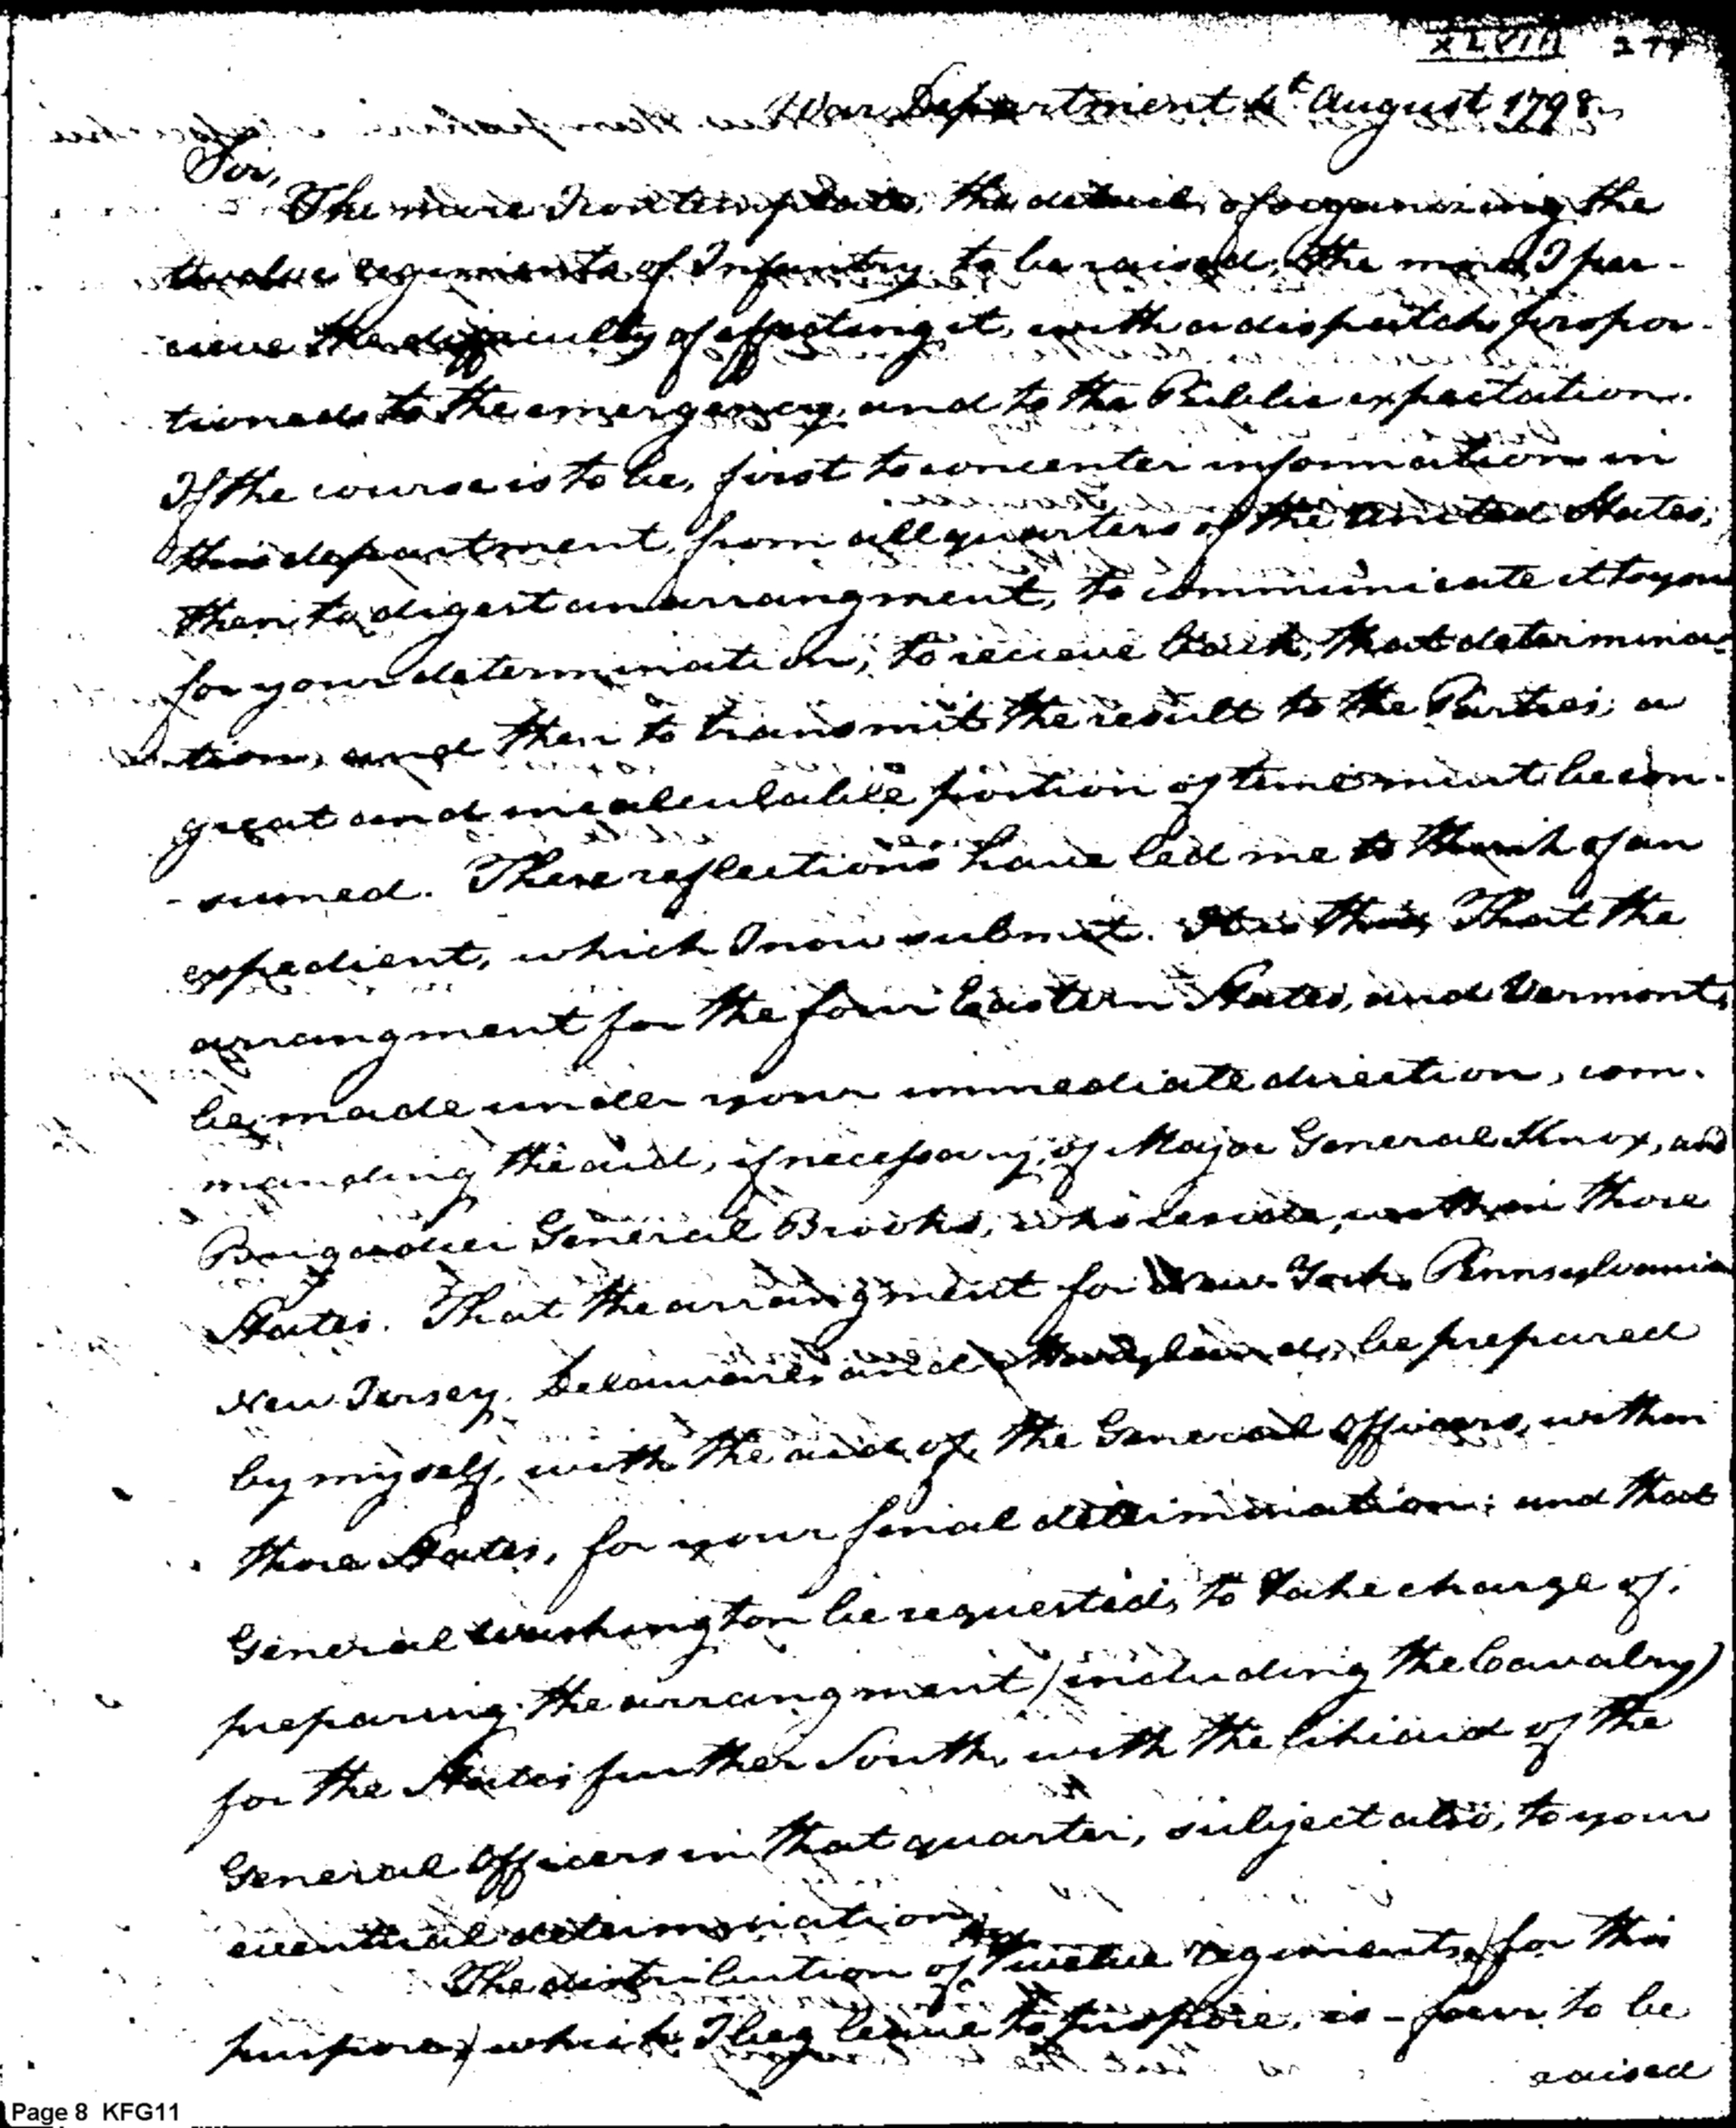 XLVIII 277
War Department 4t August 1798
Sir,
The more I contemplate, the detail, of organizing the
twelve regiments of Infantry, to be raised, the more I per-
cieve the difficulty of effecting it, with a dispatch, propor-
tioned to the emergency, and to the Public expectation.
If the course is to be, first to concenter information in
this department, from all quarters of the United States,
then to digest an arrangment, to communicate it to you
for your determination, to recieve back, that determina-
tion, and then to transmit the result to the Parties, a
great and incalculable portion of time must be con-
-sumed. These reflections have led me to think of an
expedient, which I now submit. It is this, That the
arrangment for the four Eastern States, and Vermont,
be made under your immediate direction, com-
manding the aid, if necessary, of Major General Knox, and
Brigadier General Brooks, who reside, within those
States. That the arrangment for New York, Pennsylvania
New Jersey, Delaware, and Maryland, be prepared
by myself, with the aid of the General Officers, within
those States, for your final determination; and that
General Washington be requested, to take charge of,
preparing the arrangment (including the Cavalry)
for the States further South, with the like aid of the
General Officers in that quarter, subject also, to your
eventual determination.
The distribution of the Twelve regiments, for this
purpose, which I beg leave to propose, is - four to be
raised
Page 8 KFG11